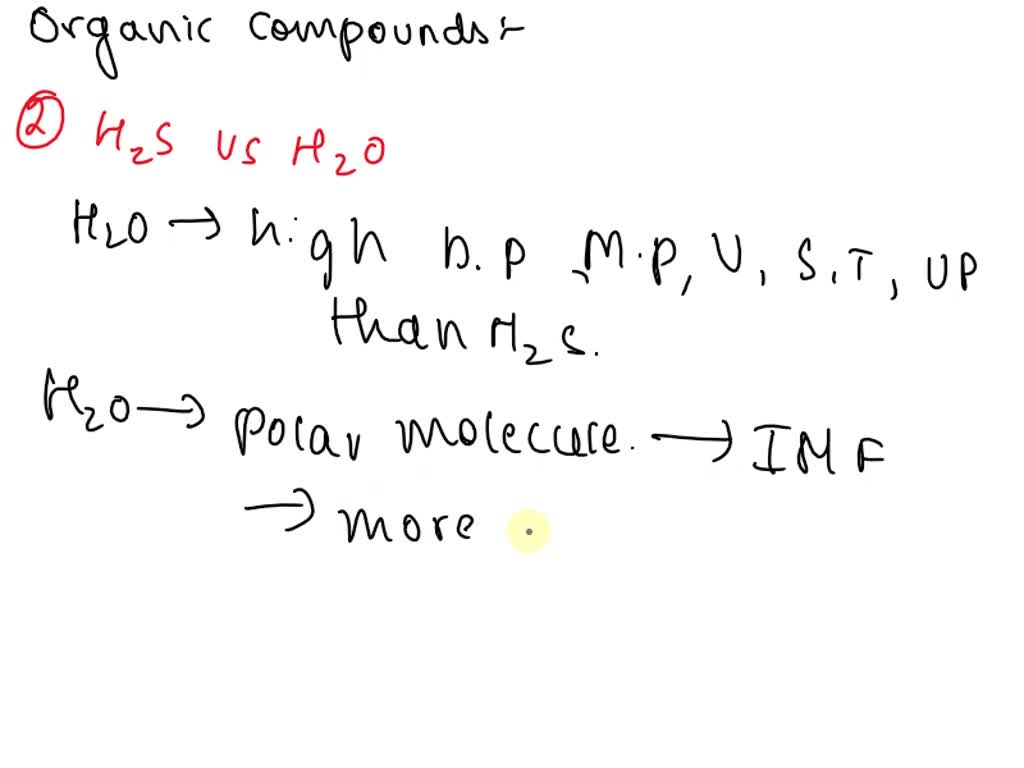 Organic Compounds:-
② H2S vs H2O
H2O → high b.p, M.p, V, S.T, VP
than H2S.
H2O → polar molecule. → IMF
→ more